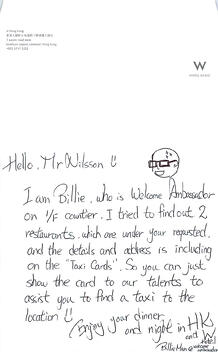 W Hong Kong
1 Austin Road West
Kowloon Station, Kowloon, Hong Kong
W
WHOTELS
Hello, Mr Nilsson
I am Billie, who is Welcome Ambassador
on 1/F counter. I tried to find out 2
restaurants, which are under your requested,
and the details and address is including
on the "Taxi Cards". So you can just
show the card to our talents to
assist you to find a taxi to the
location
Enjoy your dinner
and night in HK
and W
Billie Man
welcome ambassador